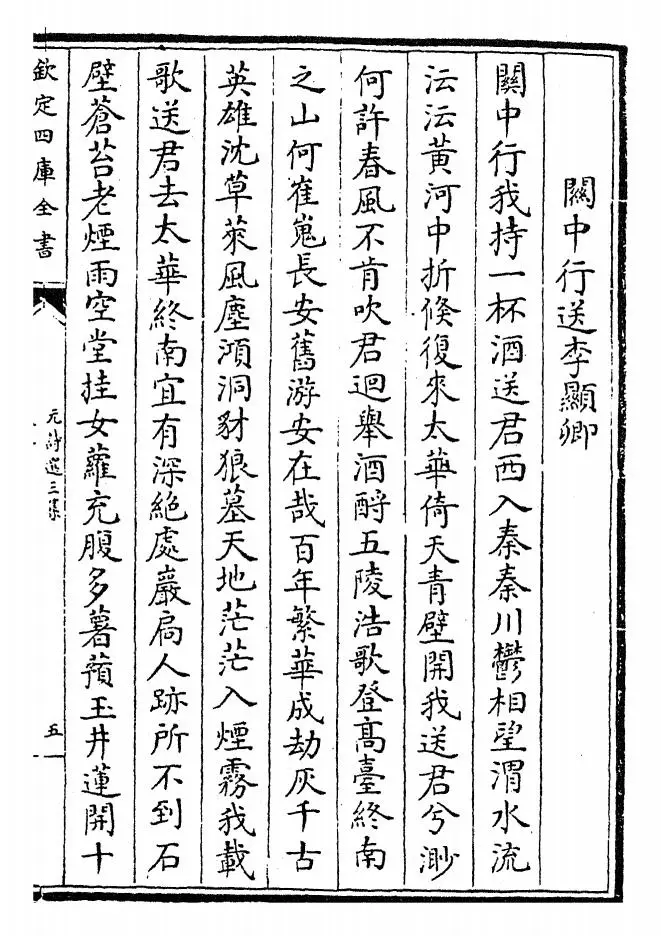 關中行送李顯卿
關中行我持一杯酒送君西入秦秦川鬱相望渭水流
沄沄黃河中折倏復來太華倚天青壁開我送君兮渺
何許春風不肯吹君迴舉酒酹五陵浩歌登高臺終南
之山何崔嵬長安舊游安在哉百年繁華成劫灰千古
英雄沈草萊風塵澒洞豺狼墓天地茫茫入煙霧我載
歌送君去太華終南宜有深絶處巖扃人跡所不到石
壁蒼苔老煙雨空堂挂女蘿充腹多薯蕷玉井蓮開十
欽定四庫全書
元詩選三集
五